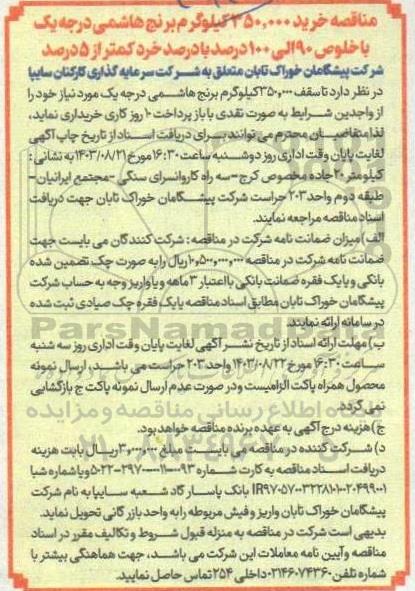 مناقصه خرید ۳۵۰,۰۰۰ کیلوگرم برنج هاشمی درجه یک
با خلوص ۹۰ الی ۱۰۰ درصد با درصد خرد کمتر از ۵ درصد
شرکت پیشگامان خوراک تابان متعلق به شرکت سرمایه گذاری کارکنان سایپا
در نظر دارد تا سقف ۳۵۰,۰۰۰ کیلوگرم برنج هاشمی درجه یک مورد نیاز خود را
از واجدین شرایط به صورت نقدی با باز پرداخت ۱۰ روز کاری خریداری نماید،
لذا متقاضیان محترم می توانند برای دریافت اسناد از تاریخ چاپ آگهی
لغایت پایان وقت اداری روز دوشنبه ساعت ۱۶:۳۰ مورخ ۱۴۰۳/۰۸/۲۱ به نشانی:
کیلومتر ۲۰ جاده مخصوص کرج-سه راه کاروانسرای سنگی -مجتمع ایرانیان-
طبقه دوم واحد ۲۰۳ حراست شرکت پیشگامان خوراک تابان جهت دریافت
اسناد مناقصه مراجعه نمایند.
الف) میزان ضمانت نامه شرکت در مناقصه: شرکت کنندگان می بایست جهت
ضمانت نامه شرکت در مناقصه ریال را به صورت چک تضمین شده
بانکی و یا یک فقره ضمانت بانکی با اعتبار ۳ ماهه و یا واریز وجه به حساب شرکت
پیشگامان خوراک تابان مطابق اسناد مناقصه یا یک فقره چک صیادی ثبت شده
در سامانه ارائه نمایند.
ب) مهلت ارائه اسناد از تاریخ نشر آگهی لغایت پایان وقت اداری روز سه شنبه
ساعت ۱۶:۳۰ مورخ ۱۴۰۳/۰۸/۲۲ واحد ۲۰۳ حراست می باشد، ارسال نمونه
محصول همراه پاکت الزامیست و در صورت عدم ارسال نمونه پاکت ج بازگشایی
نمی گردد.
ج) هزینه درج آگهی به عهده برنده مناقصه خواهد بود.
د) شرکت کننده در مناقصه می بایست مبلغ ریال بابت هزینه
دریافت اسناد مناقصه به کارت شماره و یا شماره شبا
بانک پاسارگاد شعبه سایپا به نام شرکت
پیشگامان خوراک تابان واریز و فیش مربوطه را به واحد بازرگانی تحویل نماید.
بدیهی است شرکت در مناقصه به منزله قبول شروط و تکالیف مقرر در اسناد
مناقصه و آیین نامه معاملات این شرکت می باشد، جهت هماهنگی بیشتر با
شماره تلفن ۰۲۱۴۶۰۷۴۳۶۰ داخلی ۲۵۴ تماس حاصل نمایید.
ParsNamadData